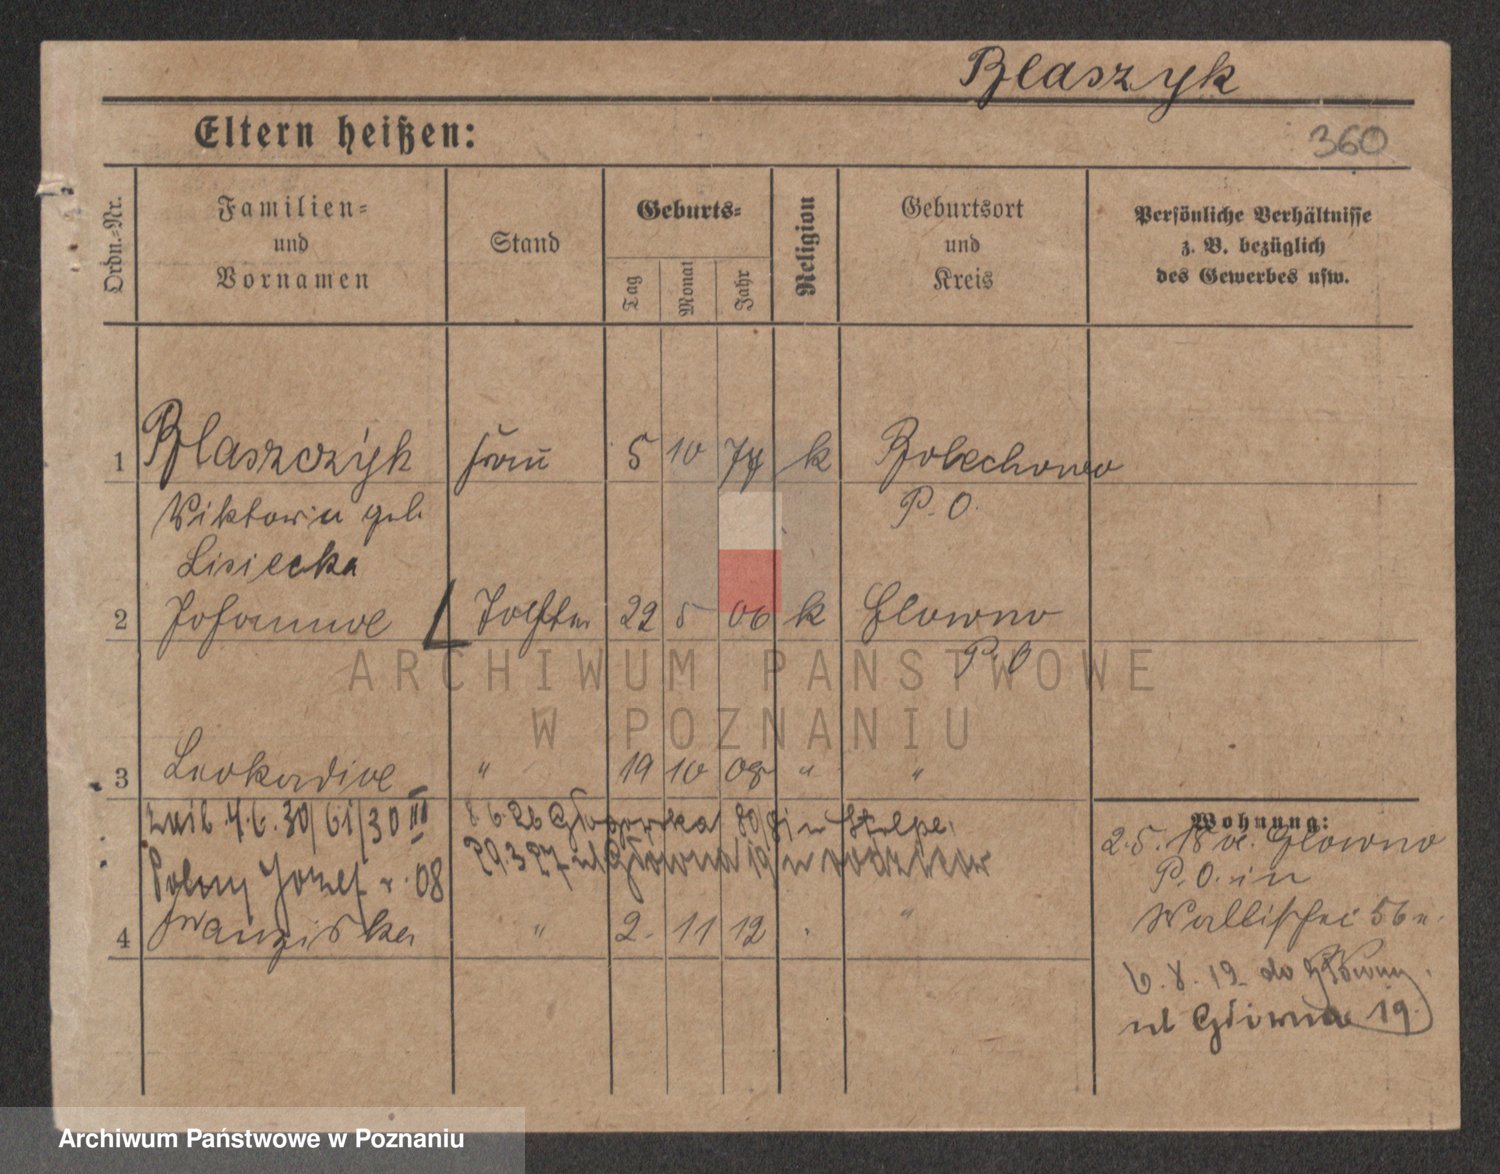 Blaszyk
Eltern heißen:
360
Ordn.-Nr.
Familien- und Vornamen
Stand
Geburts-
Tag
Monat
Jahr
Religion
Geburtsort und Kreis
Persönliche Verhältnisse z. B. bezüglich des Gewerbes usw.
1 Blaszczyk Frau 5 10 77 k Bolechowo
Viktoria geb. P. O.
Lisiecka
2 Johanne Tochter 22 5 06 k Glowno
P. O
3 Leokadie " 19 10 08 " "
4.6.30/61/30 III
8 6 26 Głogowska 80/81
29 3 27 ul Główna 19
Józef 08
4 Franziska " 2. 11 12 "
Wohnung:
2.5.18 v. Glowno
P. O. in
Wallischei 56
6.8.19 do Główny
ul Główna 19.
ARCHIWUM PAŃSTWOWE
W POZNANIU
Archiwum Państwowe w Poznaniu